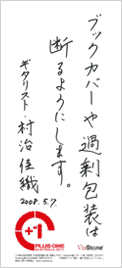 ブックカバーや過剰包装は
断るようにします。
ギタリスト・村治佳織
2008.5.7.
+1
PLUS ONE